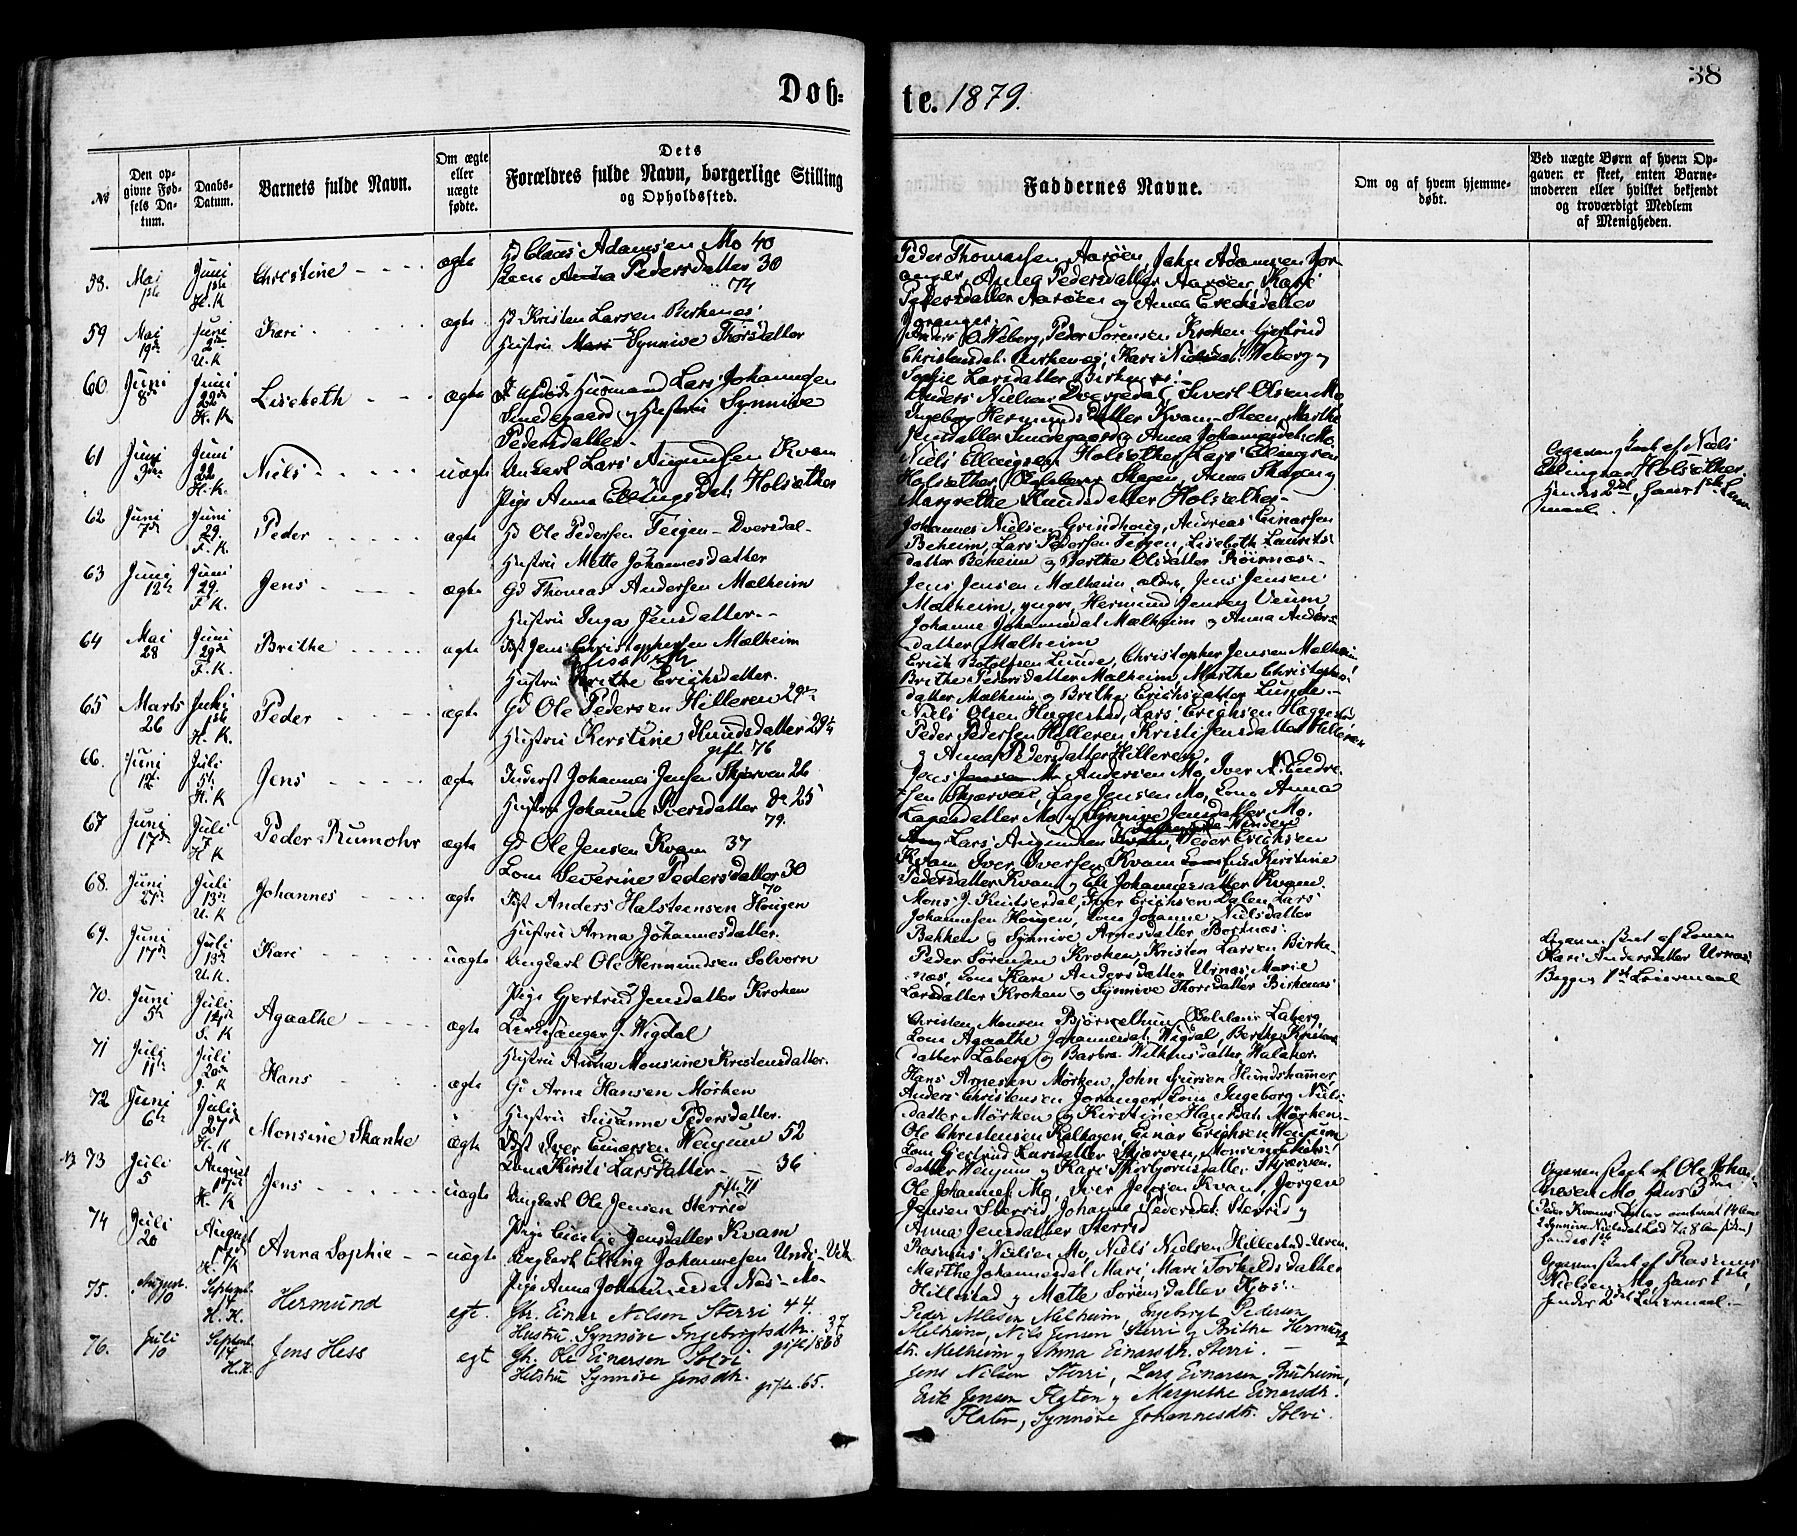 Døb=
te. 1879.
38
№
Den op-
givne Fød-
sels Da-
tum.
Daabs-
Datum.
Barnets fulde Navn.
Om ægte
eller
uægte
fødte.
Dets
Forældres fulde Navn, borgerlige Stilling
og Opholdssted.
Faddernes Navne.
Om og af hvem hjemme-
døbt.
Ved uægte Børn af hvem Op-
gaven er skeet, enten Barne-
moderen eller hvilket bekjendt
og troværdigt Medlem
af Menigheden.
58. Mai 1ste Juni 1ste H. K Christine ægte Gd Claus Adamsen Mo 40
Lene Pedersdatter 30
74
Peder Thomassen Aarøen, John Adamsen Jor-
anger, Anna Pedersdatter Aarøen, Kari
Pedersdatter Aarøen og Anna Erichsdatter
Joranger.
59 Mai 19de Juni 2den U. K Kari ægte Gd Kristen Larsen Birkenæs
Hustru Mari Synnive Thorsdatter
Anders O. Heberg, Peder Sørensen Kroken, Gjertrud
Christensdat. Birkenæs, Kari Nielsdat. Heberg og
Sophie Larsdatter Birkenæs.
60 Juni 8de Juni 22de H. K Lisebeth ægte Husmand Lars Johannesen
Smedegaard og Hustru Synnive
Pedersdatter
Anders Nielsen Dversdal, Sivert Olsen Mo
Ingeborg Hermundsdatter Kvam-Steen, Marthe
Jensdatter Smedegaard og Anna Johannesdat. Mo
61 Juni Juni 22 H. K. Niels uægte Ungkarl Lars Augundsen Kvam
Pige Anna Ellingsdat. Holsæther
Niels Ellingsen Holsæther, Lars Ellingsen
Holsæther, Skagen, Anna Skagen og
Margrethe Knudsdatter Holsæther
Opgaven skeet af Niels
Ellingsen Holsæther.
Hendes 2det, hans 1ste Leier-
maal.
62 Juni 7de Juni 29. F. K. Peder ægte Gd Ole Pedersen Teigen - Dversdal
Hustru Mette Johannesdatter
Johannes Nielsen Grindhoug, Andreas Einarsen
Beheim, Lars Pedersen Teigen, Lisebeth Laurits-
datter Beheim og Berthe Olsdatter Røisnæs
63 Juni 12te Juni 29. F K. Jens ægte Gd Thomas Andersen Mælheim
Hustru Inga Jensdatter
Jens Jensen Mælheim, ældre, Jens Jensen
Mælheim, yngre, Hermund Jensen Veum,
Johanne Johannesdat Mælheim og Anna Anders-
datter Mælheim
64 Mai 28 Juni 29de F. K. Brithe ægte Jens Christophersen Mælheim
Hustru Brithe Erichsdatter.
Erich Botolfsen Lunde, Christopher Jensen Mælheim
Brithe Pedersdatter Mælheim, Marthe Christophers-
datter Mælheim og Brithe Erichsdatter Lunde
65 Marts 26 Juli 1ste H. K. Peder ægte Gd Ole Pedersen Hilleren 29
Hustru Kerstine Knudsdatter 29
gift 76
Niels Olsen Haggestad, Lars Erichsen Haggestad
Peder Pedersen Hilleren Kristi Jensdatter Hilleren
og Anna Pedersdatter Hilleren.
66. Juni 12 Juli 5te H. K Jens ægte Inderst Johannes Jensen Skjærven 26
Hustru Johanne Iversdatter do 25
79.
Jens Andersen Mo, Iver N. Endre-
sen Skjærven, Lage Jensen Mo, Anna
Lagesdatter Mo og Synnive Jensdatter Mo.
67 Juni 17de Juli 7 H K Peder Rumohr ægte Gd Ole Jensen Kvam 37
Severine Pedersdatter 30
70
Lars Augundsen Kvam, Peder Erichsen
Kvam Iver Iversen Kvam Kirstine
Pedersdatter Kvam og Eli Johannesdatter Kvam.
68. Juni 27de Juli 13de U. K Johannes ægte Anders Halsteensen Hougen
Hustru Anna Johannesdatter.
Mons J. Knitserdal, Iver Erichsen Dalen Lars
Johannesen Hougen, Johanne Nielsdatter
Bakken og Synnive Arnesdatter Bortnæs
69. Juni 17de Juli 13de U. K. Kari uægte Ungkarl Ole Hermundsen Solvorn
Pige Gjertrud Jensdatter Kroken
Peder Sørensen Kroken, Kristen Larsen Birke-
næs, Kari Andersdatter Urnæs, Marie
Larsdatter Kroken og Synnive Thorsdatter Birkenæs
Opgaven skeet af Konen
Kari Andersdatter Urnæs
Begges 1ste Leiermaal
70. Juni 5te Juli 14de Agaathe ægte Kirkesanger J. Wigdal
Hustru Anna Monsine Kristensdatter.
Christen Monsen Bjørsethun, Laberg
Agaathe Johannesdat. Wigdal, Berthe Kristens-
datter Laberg og Barbra Wilhmsdatter Halaker
71 Juli 11te Juli 20de J. K Hans ægte Gd Arne Hansen Mørken
Hustru Susanne Pedersdatter
Hans Arnesen Mørken, John Sjursen Hundshammer
Anders Christensen Joranger, Ingeborg Niels-
datter Mørken og Kirstine Hansdat. Mørken
72 Juni 6te Juli 27de H. K Monsine Skanke ægte Iver Einarsen Wengum 52
Kirsti Larsdatter 36
gift 71
Ole Christensen Kalhagen, Einar Erichsen Wengum
Gjertrud Larsdatter Skjærven,
datter Wengum og Kari Thorbjørnsdatter Skjærven
73 Juli 5 August H. K Jens uægte Ungkarl Ole Jensen Sterrid
Pige Cicilie Jensdatter Kvam
Ole Johannes. Mo, Iver Jensen Kvam, Jørgen
Jensen Sterrid, Johanne Pedersdat. Sterrid og
Anna Jensdatter Sterrid
Opgaven skeet af Ole Johan-
nesen Mo, hans 3die
hendes 1ste
74 Juli 20 August H. K Anna Sophie uægte Ungkarl Elling Johannesen Undi - Vik
Pige Anna Johannesdat Næs - Mo
Rasmus Nielsen Mo, Niels Nielsen Hillestad-Uren
Marthe Johannesdat Mari Mari Torkildsdatter
Hillestad og Mette Sørensdatter Kjos.
Opgaven skeet af Rasmus
Nielsen Mo, hans 1ste,
hendes 2det Leiermaal.
75. August 10 Septemb. 14 H. K. Hermund egt. Gb. Einar Nilsen Sterri 44.
Hustru Synnøve Ingebrigtsdtr. 37
gift 1868
Peder Nilsen Melheim, Ingebrigt Pedersen
Melheim, Nils Jensen Sterri og Brithe Hermunds-
dtr. Melheim og Anna Einarsdtr. Sterri.
76. Juli 10 Septemb 14 H. K. Jens Hess egt Gb. Ole Einarsen Solvi
Hustru Synnøve Jensdtr.
gifte. 65.
Jens Nilsen Sterri, Lars Einarsen Bruheim,
Erik Jensen Flaten og Margrethe Einarsdtr.
Flaten, Synnøve Johannesdtr. Solvi.